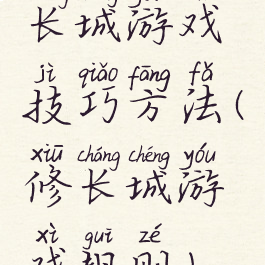 长城游戏
jì qiǎo fāng fǎ
技巧方法(
xiū cháng chéng yóu
修长城游
xì guī zé
戏规则)